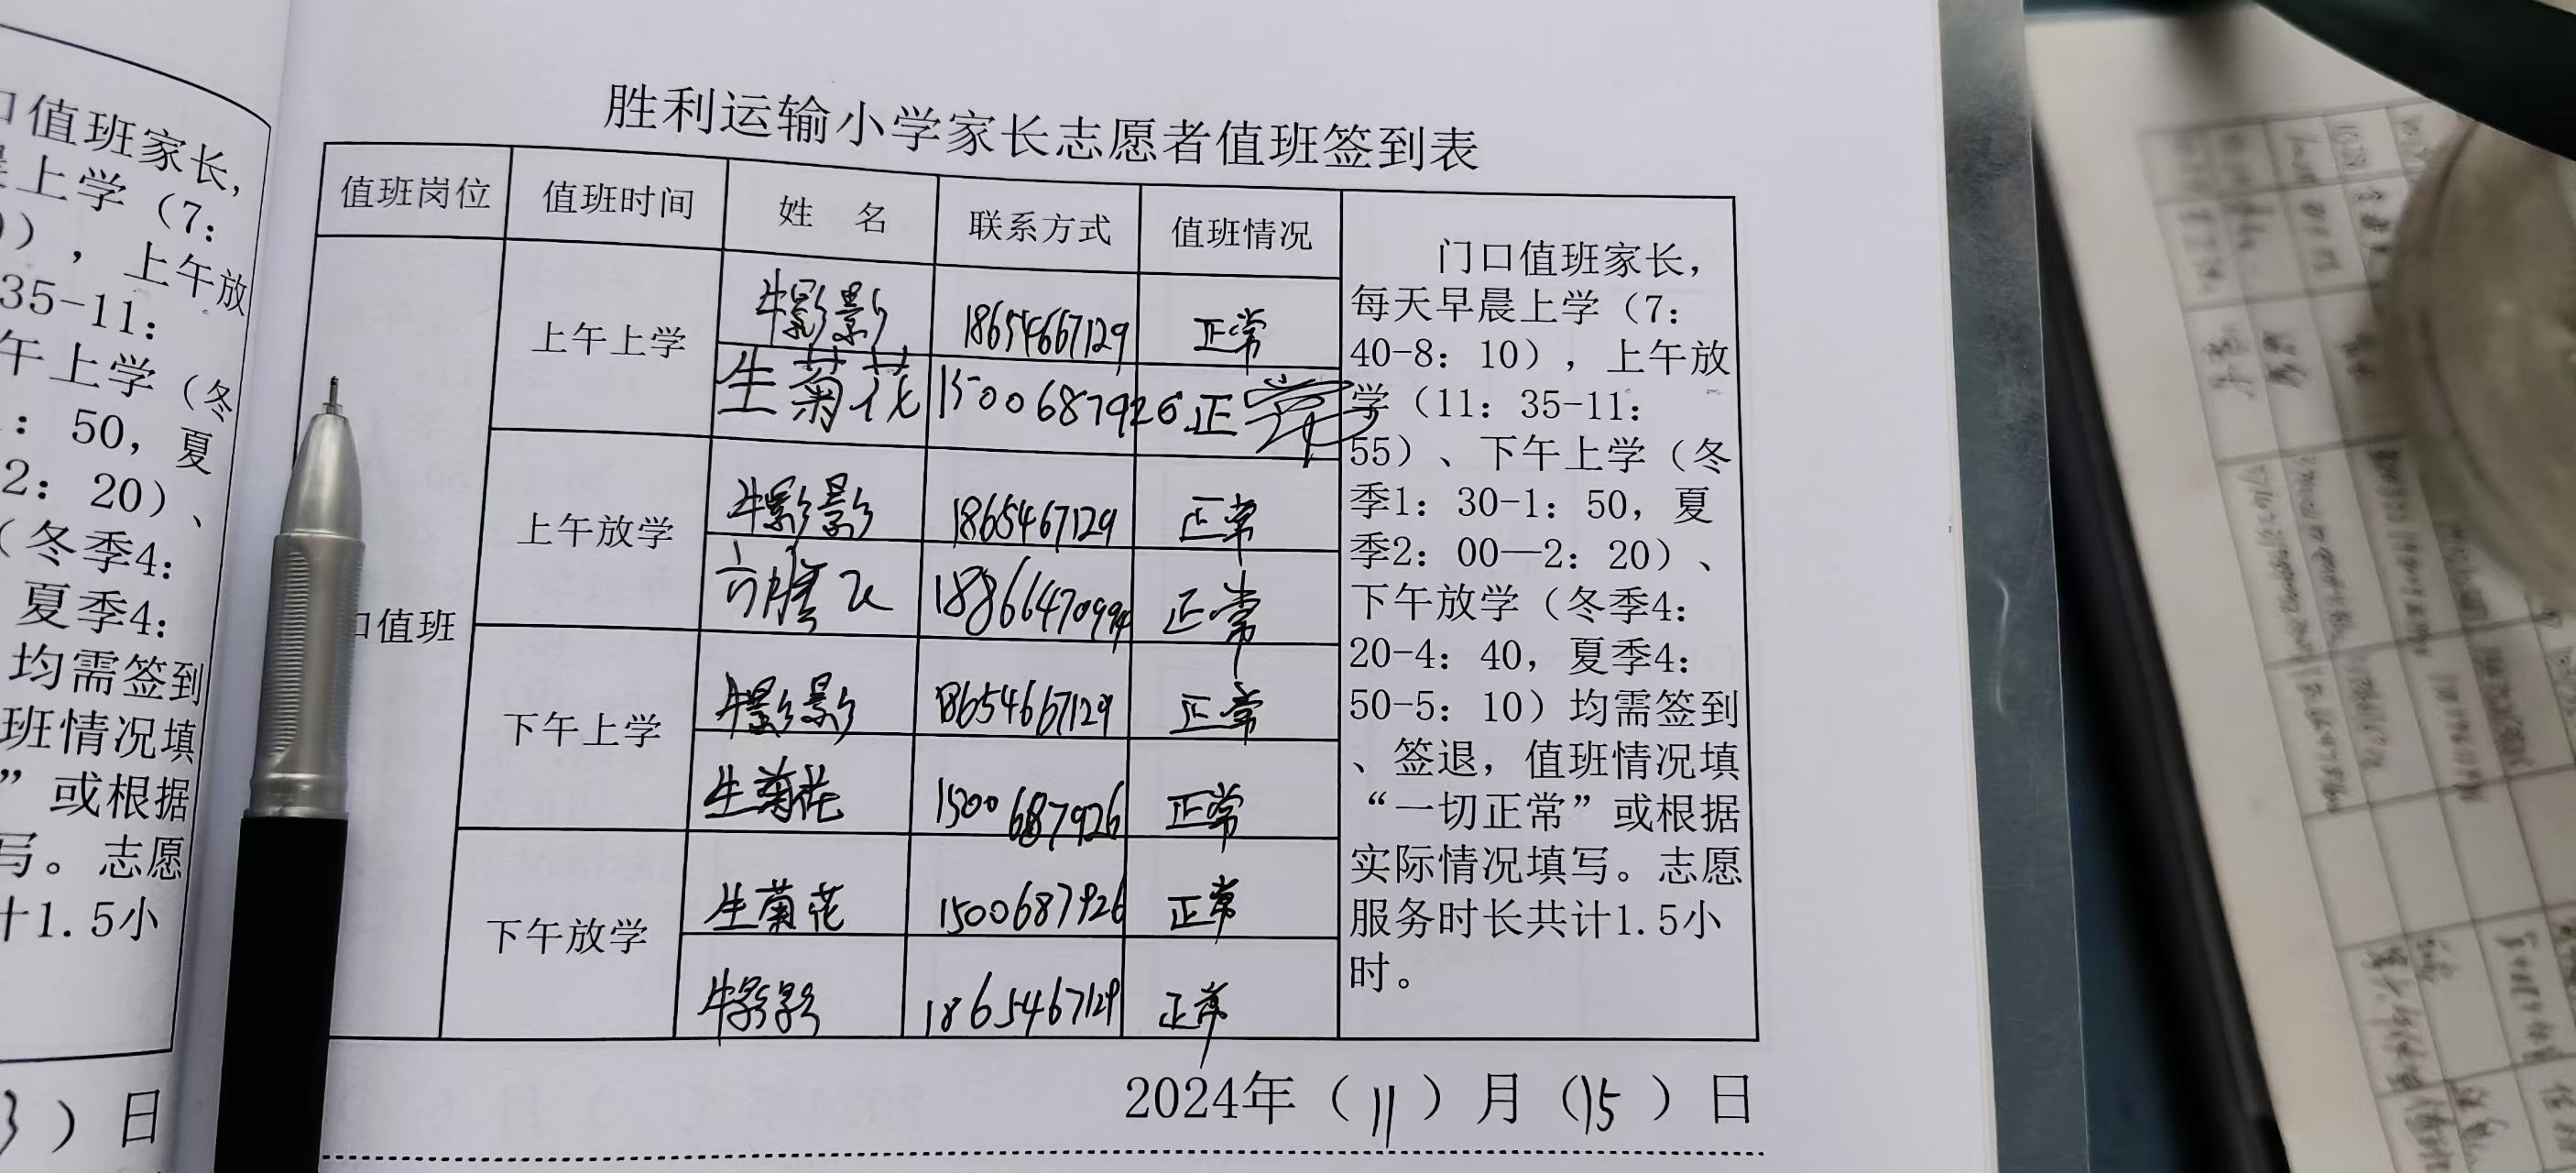 口值班家长,
上学（7:
），上午放
35-11:
午上学（冬
: 50, 夏
2: 20）、
（冬季4:
夏季4:
均需签到
班情况填
”或根据
写。志愿
计1.5小
3）日
胜利运输小学家长志愿者值班签到表
值班岗位 值班时间 姓 名 联系方式 值班情况
口值班
上午上学 牛影影 18654667129 正常
生菊花 1500687926 正常
上午放学 牛影影 1865467129 正常
18866470994 正常
下午上学 牛影影 18654667129 正常
生菊花 1500687926 正常
下午放学 生菊花 1500687926 正常
牛影影 1865467129 正常
门口值班家长,
每天早晨上学（7:
40-8: 10），上午放
学（11: 35-11:
55）、下午上学（冬
季1: 30-1: 50, 夏
季2: 00—2: 20）、
下午放学（冬季4:
20-4: 40, 夏季4:
50-5: 10）均需签到
、签退，值班情况填
“一切正常”或根据
实际情况填写。志愿
服务时长共计1.5小
时。
2024年（11）月（15）日